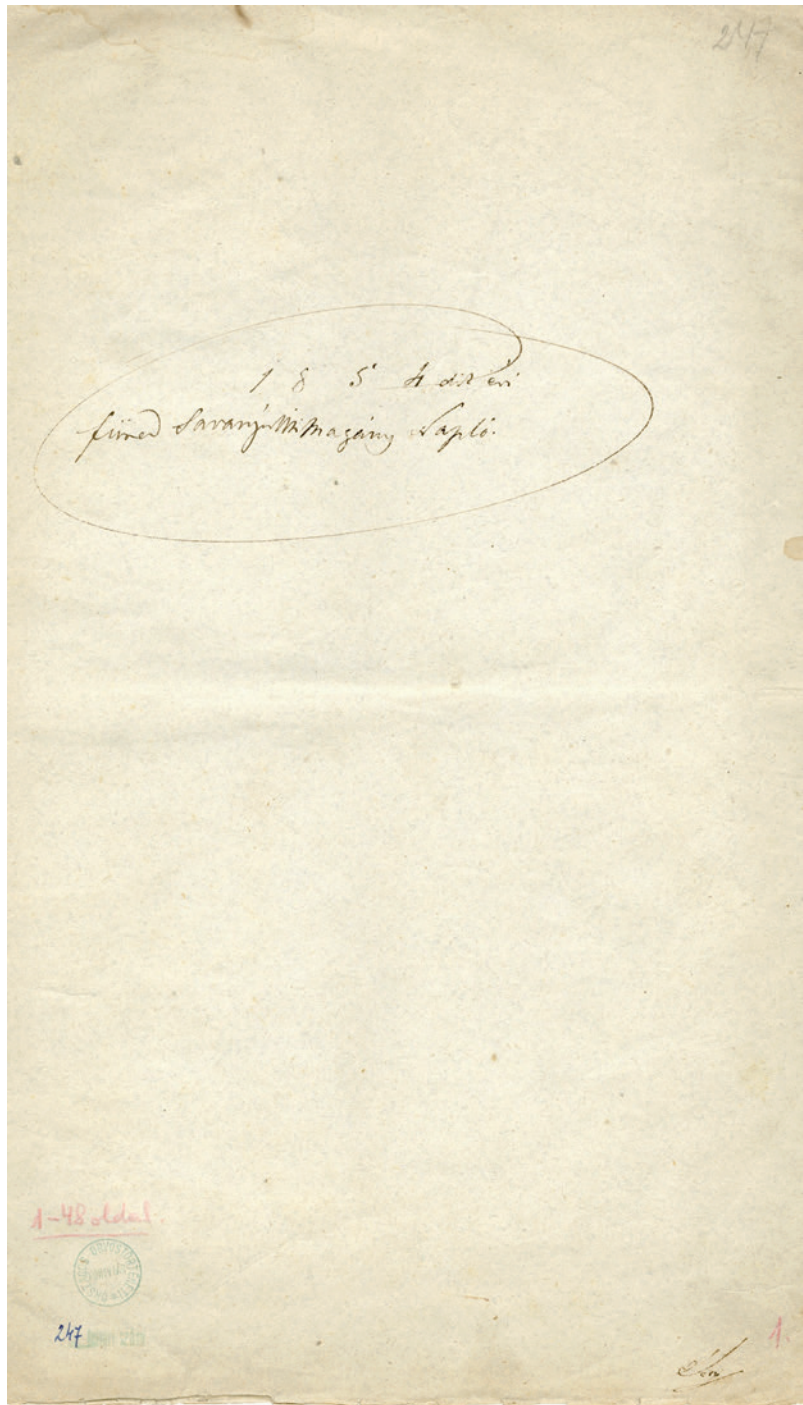 247
1 8 5 4 dik évi
füred Savanyúvízi Magány Napló.
1-48 oldal.
247
1.